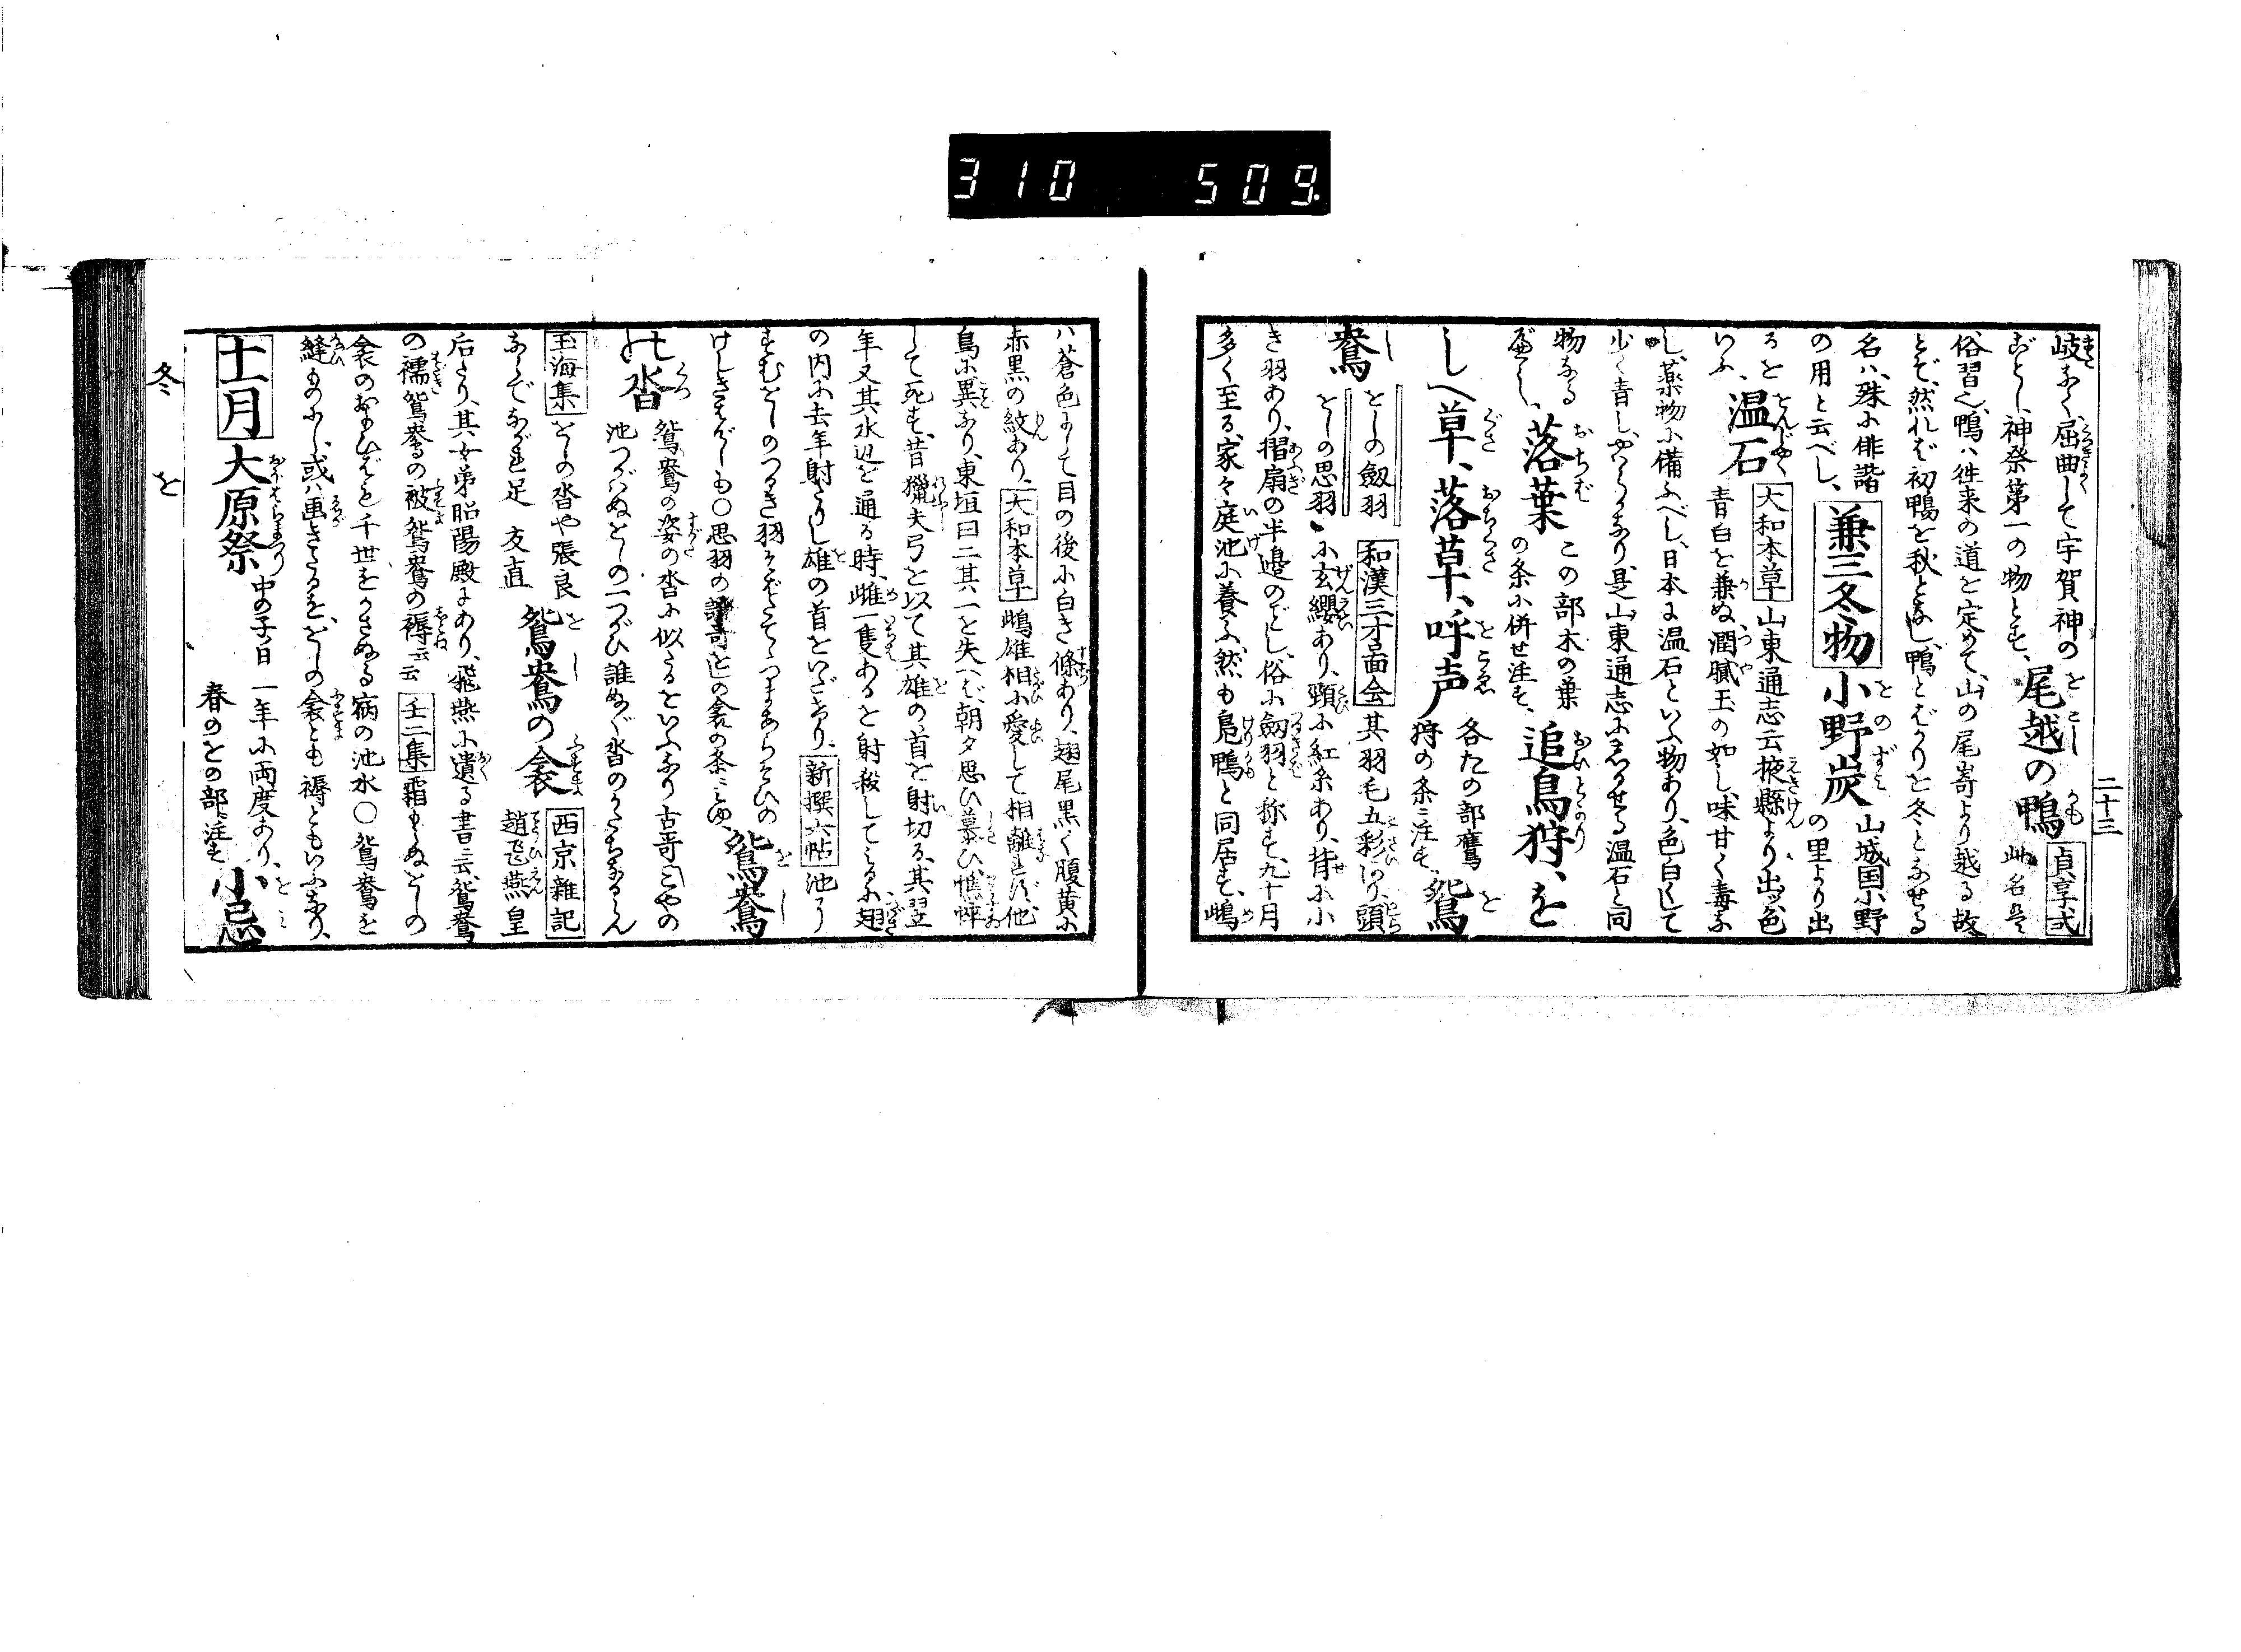 310 509.
二十三
岐なく、屈曲して宇賀神の
ごとし、神祭第一の物とす、尾越の鴨 貞享式 此名は
俗習也、鴨ハ往来の道を定めて、山の尾嵜より越る故
とぞ、然れば初鴨を秋とし、鴨とばかりを冬となせる
名ハ、殊に俳諧の用と云べし、兼三冬物 小野炭 山城国小野の里より出
るをいふ、温石 大和本草 山東通志云掖縣より出ッ、色青白を兼ぬ、潤膩玉の如し、味甘く毒な
し、薬物に備ふべし、日本に温石といふ物あり、色白くして
少く青し、やハらかなり、是山東通志に
物なる
落葉 この部木の葉の条に併せ注す、追鳥狩、を
し草、落草、呼声 各たの部鷹狩の条ニ注す、鴛
鴦 をしの劔羽 をしの思羽 和漢三才啚会 其羽毛五彩あり、頭
に玄纓あり、頸に紅糸あり、背に小
き羽あり、摺扇の半邉のごとし、俗に劔羽と称す、九十月
多く至る、家々庭池に養ふ、然も鳧鴨と同居す、鴫
ハ蒼色にして目の後に白き條あり、翅尾黒く腹黄に
赤黒の紋あり、大和本草 雌雄相に愛して相離れず、他
鳥に異なり、東垣曰二其一を失へば、朝夕思ひ慕ひ、憔悴
して死す、昔獵夫弓を以て其雄の首を射切る、其翌
年又其水辺を通る時、雌一隻あるを射殺してみるに翅
の内に去年射たりし雄の首をいだきたり、新撰六帖 池に
すむをしのつるき羽そばだてゝつまあらそひの
けしきはげしも〇思羽の哥をしの衾の条ニみゆ、鴛鴦
の沓 鴛鴦の姿の沓に似たるといふなり古哥こやの
池つがハぬをしの一つがひ誰めぐ沓のかたちなるらん
玉海集 をしの沓や張良ならでながれ足 友直 鴛鴦の衾 西京雜記 趙飛燕皇
后たり、其女弟昭陽殿にあり、飛燕に遺る書云、鴛鴦
の襦鴛鴦の被鴛鴦の褥云云 壬二集 霜はらぬをしの
衾のおもひばを千世をかさぬる病の池水〇鴛鴦を
縫ものにし、或ハ画きたるを、をしの衾とも褥ともいふなり、
十一月 大原祭 中の子日 一年に両度あり、春のをの部ニ注す 小忌
冬 を